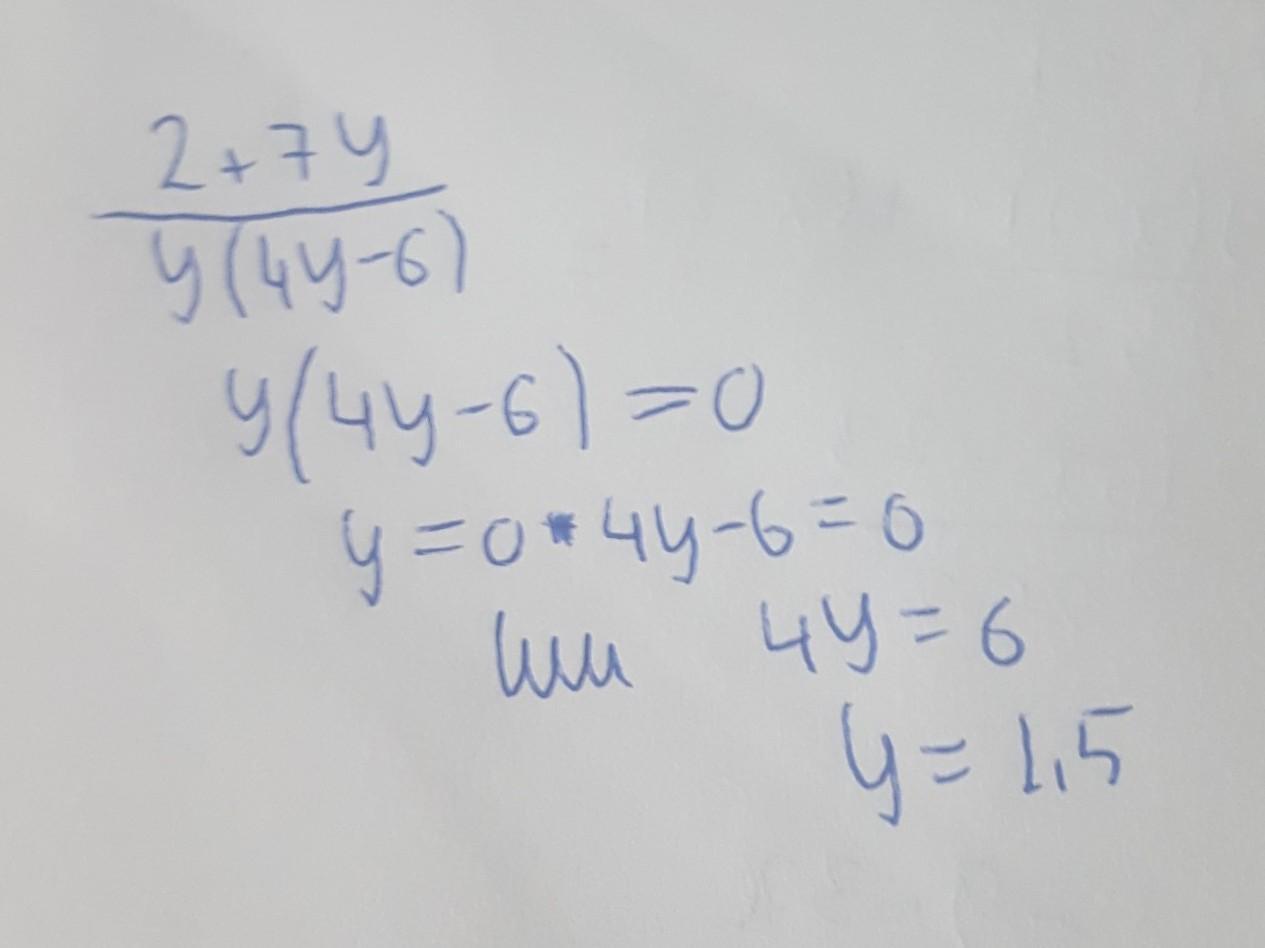 2+7y
y(4y-6)
y(4y-6)=0
y=0 4y-6=0
или 4y=6
y=1,5